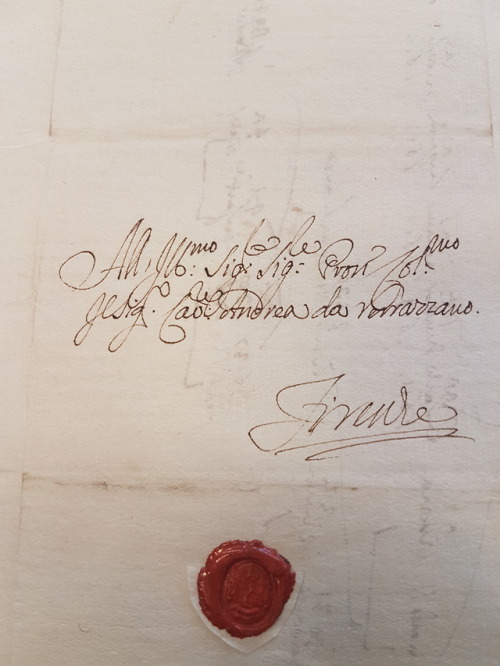 All' Ill:mo Sig:re Sig:re Pron Col:mo
Il Sig:r Cav:re Andrea da Verrazzano.
Firenze